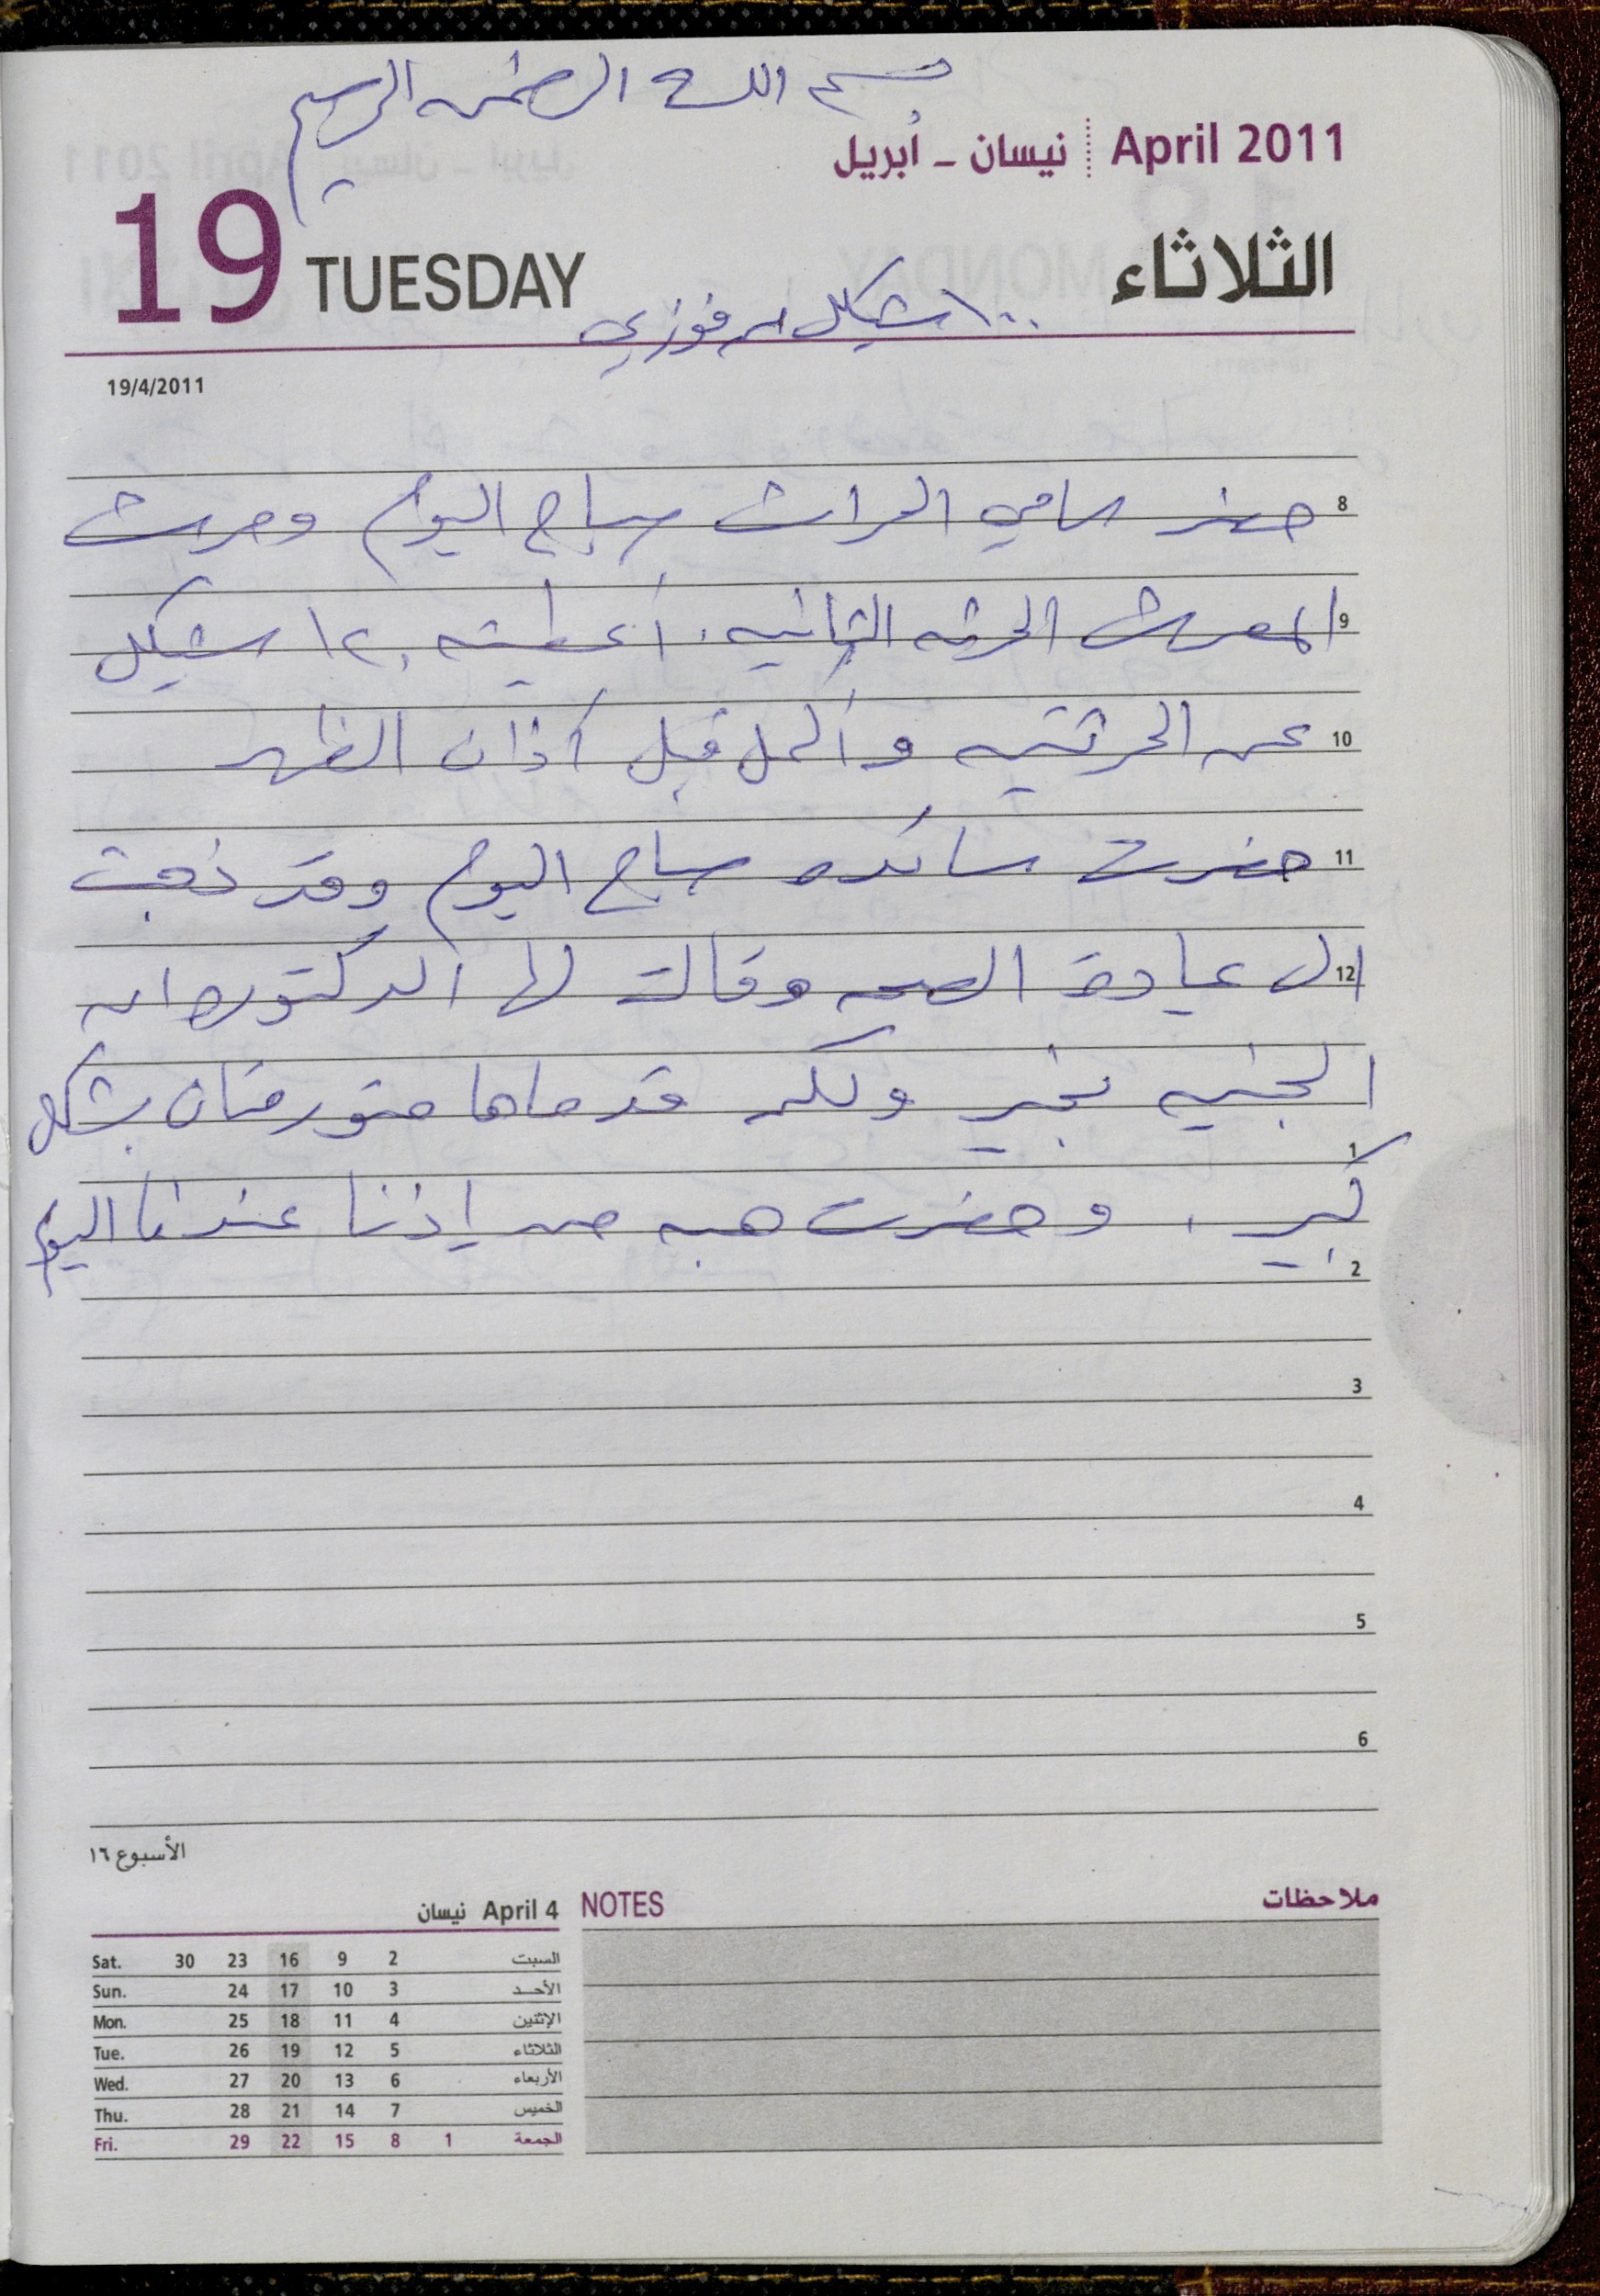 بسم الله الرحمن الرحيم
April 2011 نيسان - أبريل
19 TUESDAY الثلاثاء
١٠٠ شيكل من فوزي
19/4/2011
8 حضر سامي الحراث صباح اليوم وحرث
9 المعرش الحرثه الثانيه. أعطيته ١٢٠ شيكل
10 عن الحرثتين وأكمل قبل أذان الظهر
11 حضرت سائده صباح اليوم وقد ذهبت
12 الى عيادة الصحه وقالت لها الدكتوره ان
الجنين بخير ولكن قدماها متورمتان بشكل
1
كبير. وحضرت هبه من إذنا عندنا اليوم
2
3
4
5
6
الأسبوع ١٦
April 4 نيسان
Sat. 30 23 16 9 2 السبت
Sun. 24 17 10 3 الأحد
Mon. 25 18 11 4 الإثنين
Tue. 26 19 12 5 الثلاثاء
Wed. 27 20 13 6 الأربعاء
Thu. 28 21 14 7 الخميس
Fri. 29 22 15 8 1 الجمعة
NOTES ملاحظات